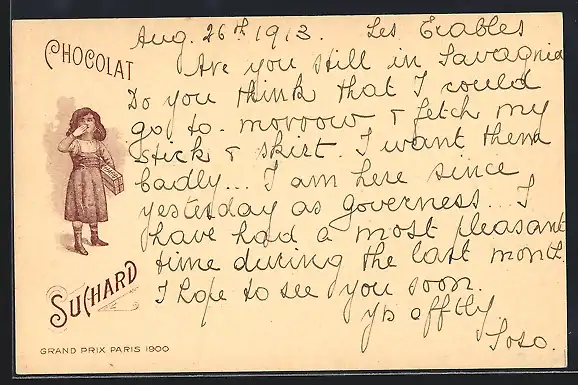 CHOCOLAT
Aug. 26th 1913. Les Erables
Are you still in Savagnia
Do you think that I could
go to-morrow & fetch my
stick & skirt. I want them
badly... I am here since
yesterday as governess... I
have had a most pleasant
time during the last month.
I hope to see you soon.
yrs afftly
Soso.
SUCHARD
GRAND PRIX PARIS 1900